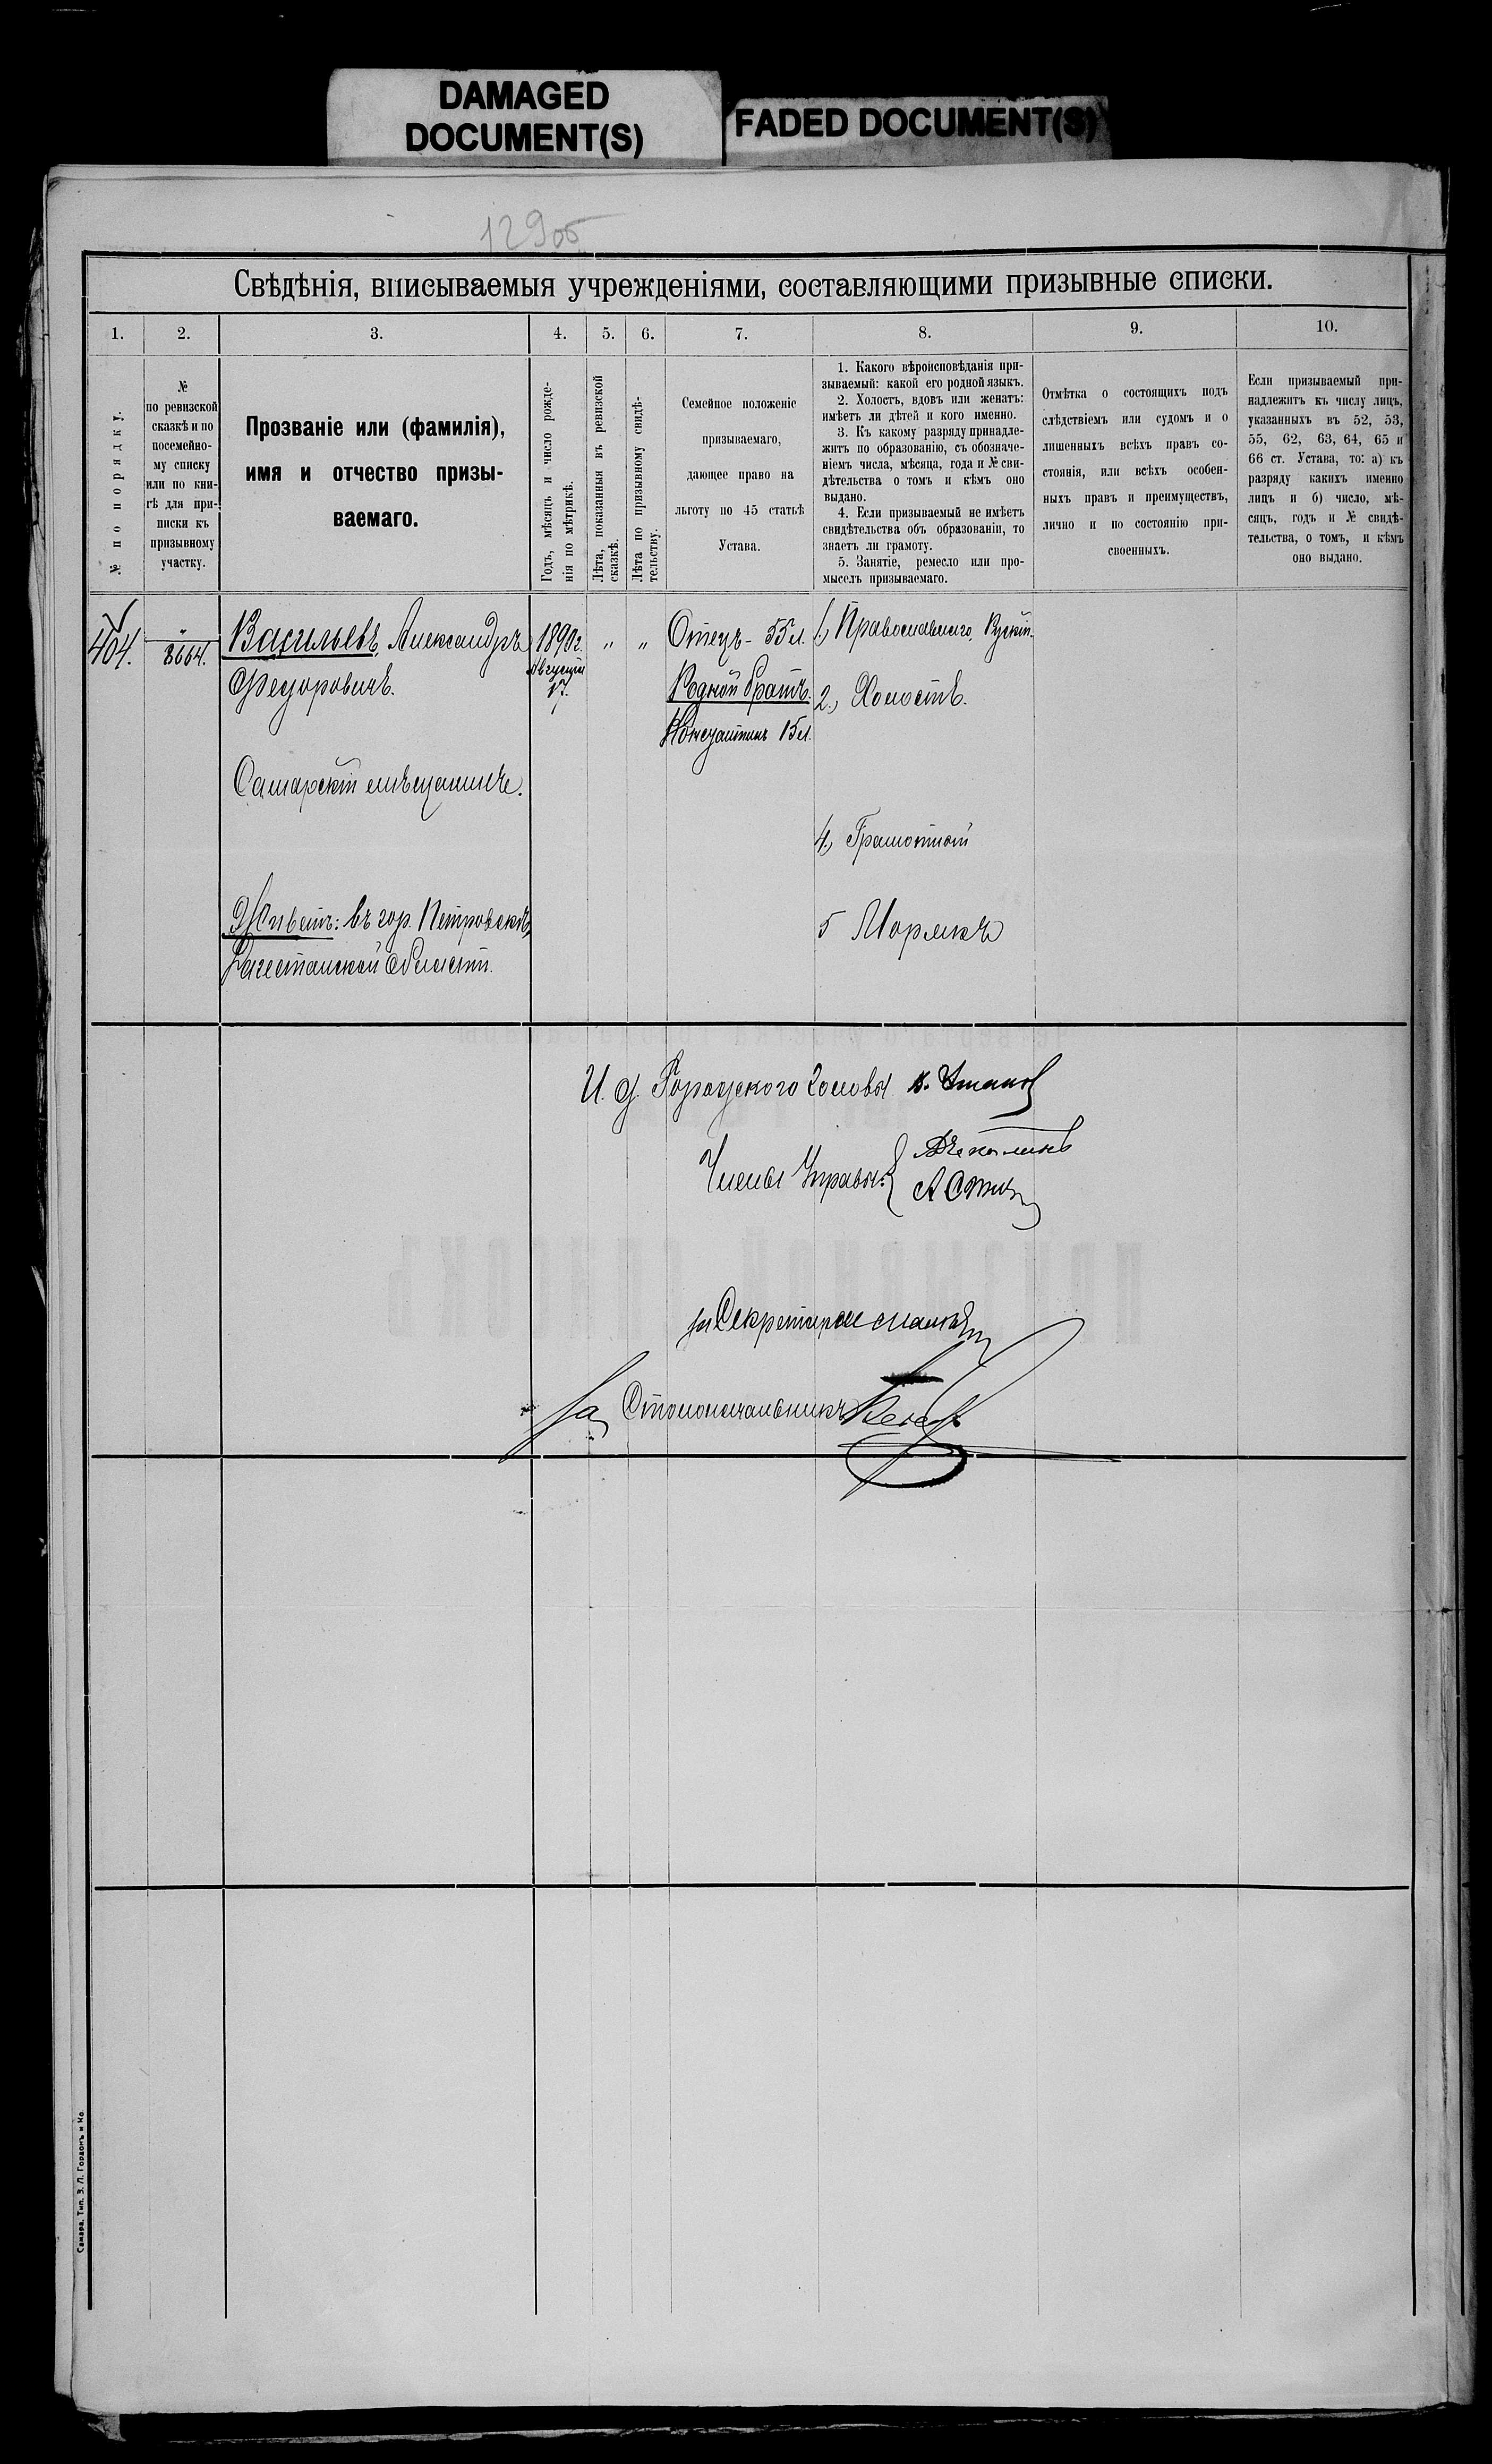 DAMAGED
DOCUMENT(S)
FADED DOCUMENT(S)
129об
Свѣдѣнія, вписываемыя учрежденіями, составляющими призывные списки.
1.
2.
3.
4.
5.
6.
7.
8.
9.
10.
№ по порядку.
№
по ревизской
сказкѣ и по
посемейно-
му списку
или по кни-
гѣ для при-
писки къ
призывному
участку.
Прозваніе или (фамилія),
имя и отчество призы-
ваемаго.
Годъ, мѣсяцъ и число рожде-
нія по мѣтрикѣ.
Лѣта, показанныя въ ревизской
сказкѣ.
Лѣта по призывному свидѣ-
тельству.
Семейное положеніе
призываемаго,
дающее право на
льготу по 45 статьѣ
Устава.
1. Какого вѣроисповѣданія при-
зываемый: какой его родной языкъ.
2. Холостъ, вдовъ или женатъ:
имѣетъ ли дѣтей и кого именно.
3. Къ какому разряду принадле-
житъ по образованію, съ обозначе-
ніемъ числа, мѣсяца, года и № сви-
дѣтельства о томъ и кѣмъ оно
выдано.
4. Если призываемый не имѣетъ
свидѣтельства объ образованіи, то
знаетъ ли грамоту.
5. Занятіе, ремесло или про-
мыселъ призываемаго.
Отмѣтка о состоящихъ подъ
слѣдствіемъ или судомъ и о
лишенныхъ всѣхъ правъ со-
стоянія, или всѣхъ особен-
ныхъ правъ и преимуществъ,
лично и по состоянію при-
своенныхъ.
Если призываемый при-
надлежитъ къ числу лицъ,
указанныхъ въ 52, 53,
55, 62, 63, 64, 65 и
66 ст. Устава, то: а) къ
разряду какихъ именно
лицъ и б) число, мѣ-
сяцъ, годъ и № свидѣ-
тельства, о томъ, и кѣмъ
оно выдано.
404.
"
8664.
Васильевъ, Александръ
Федоровичъ.
Самарскій мѣщанинъ.
Живетъ: въ гор. Петровскѣ,
Дагестанской области.
1890г.
Августа
17.
"
"
Отецъ - 55 л.
Родной братъ.
Константинъ 15 л.
1.) Православнаго, Русскій.
2.) Холостъ.
4.) Грамотный
5 Морякъ
И. д. Городского Головы
Члены Управы:
за Секретаря
За Столоначальникъ
Самара, Тип. З. Л. Гордонъ и Ко.